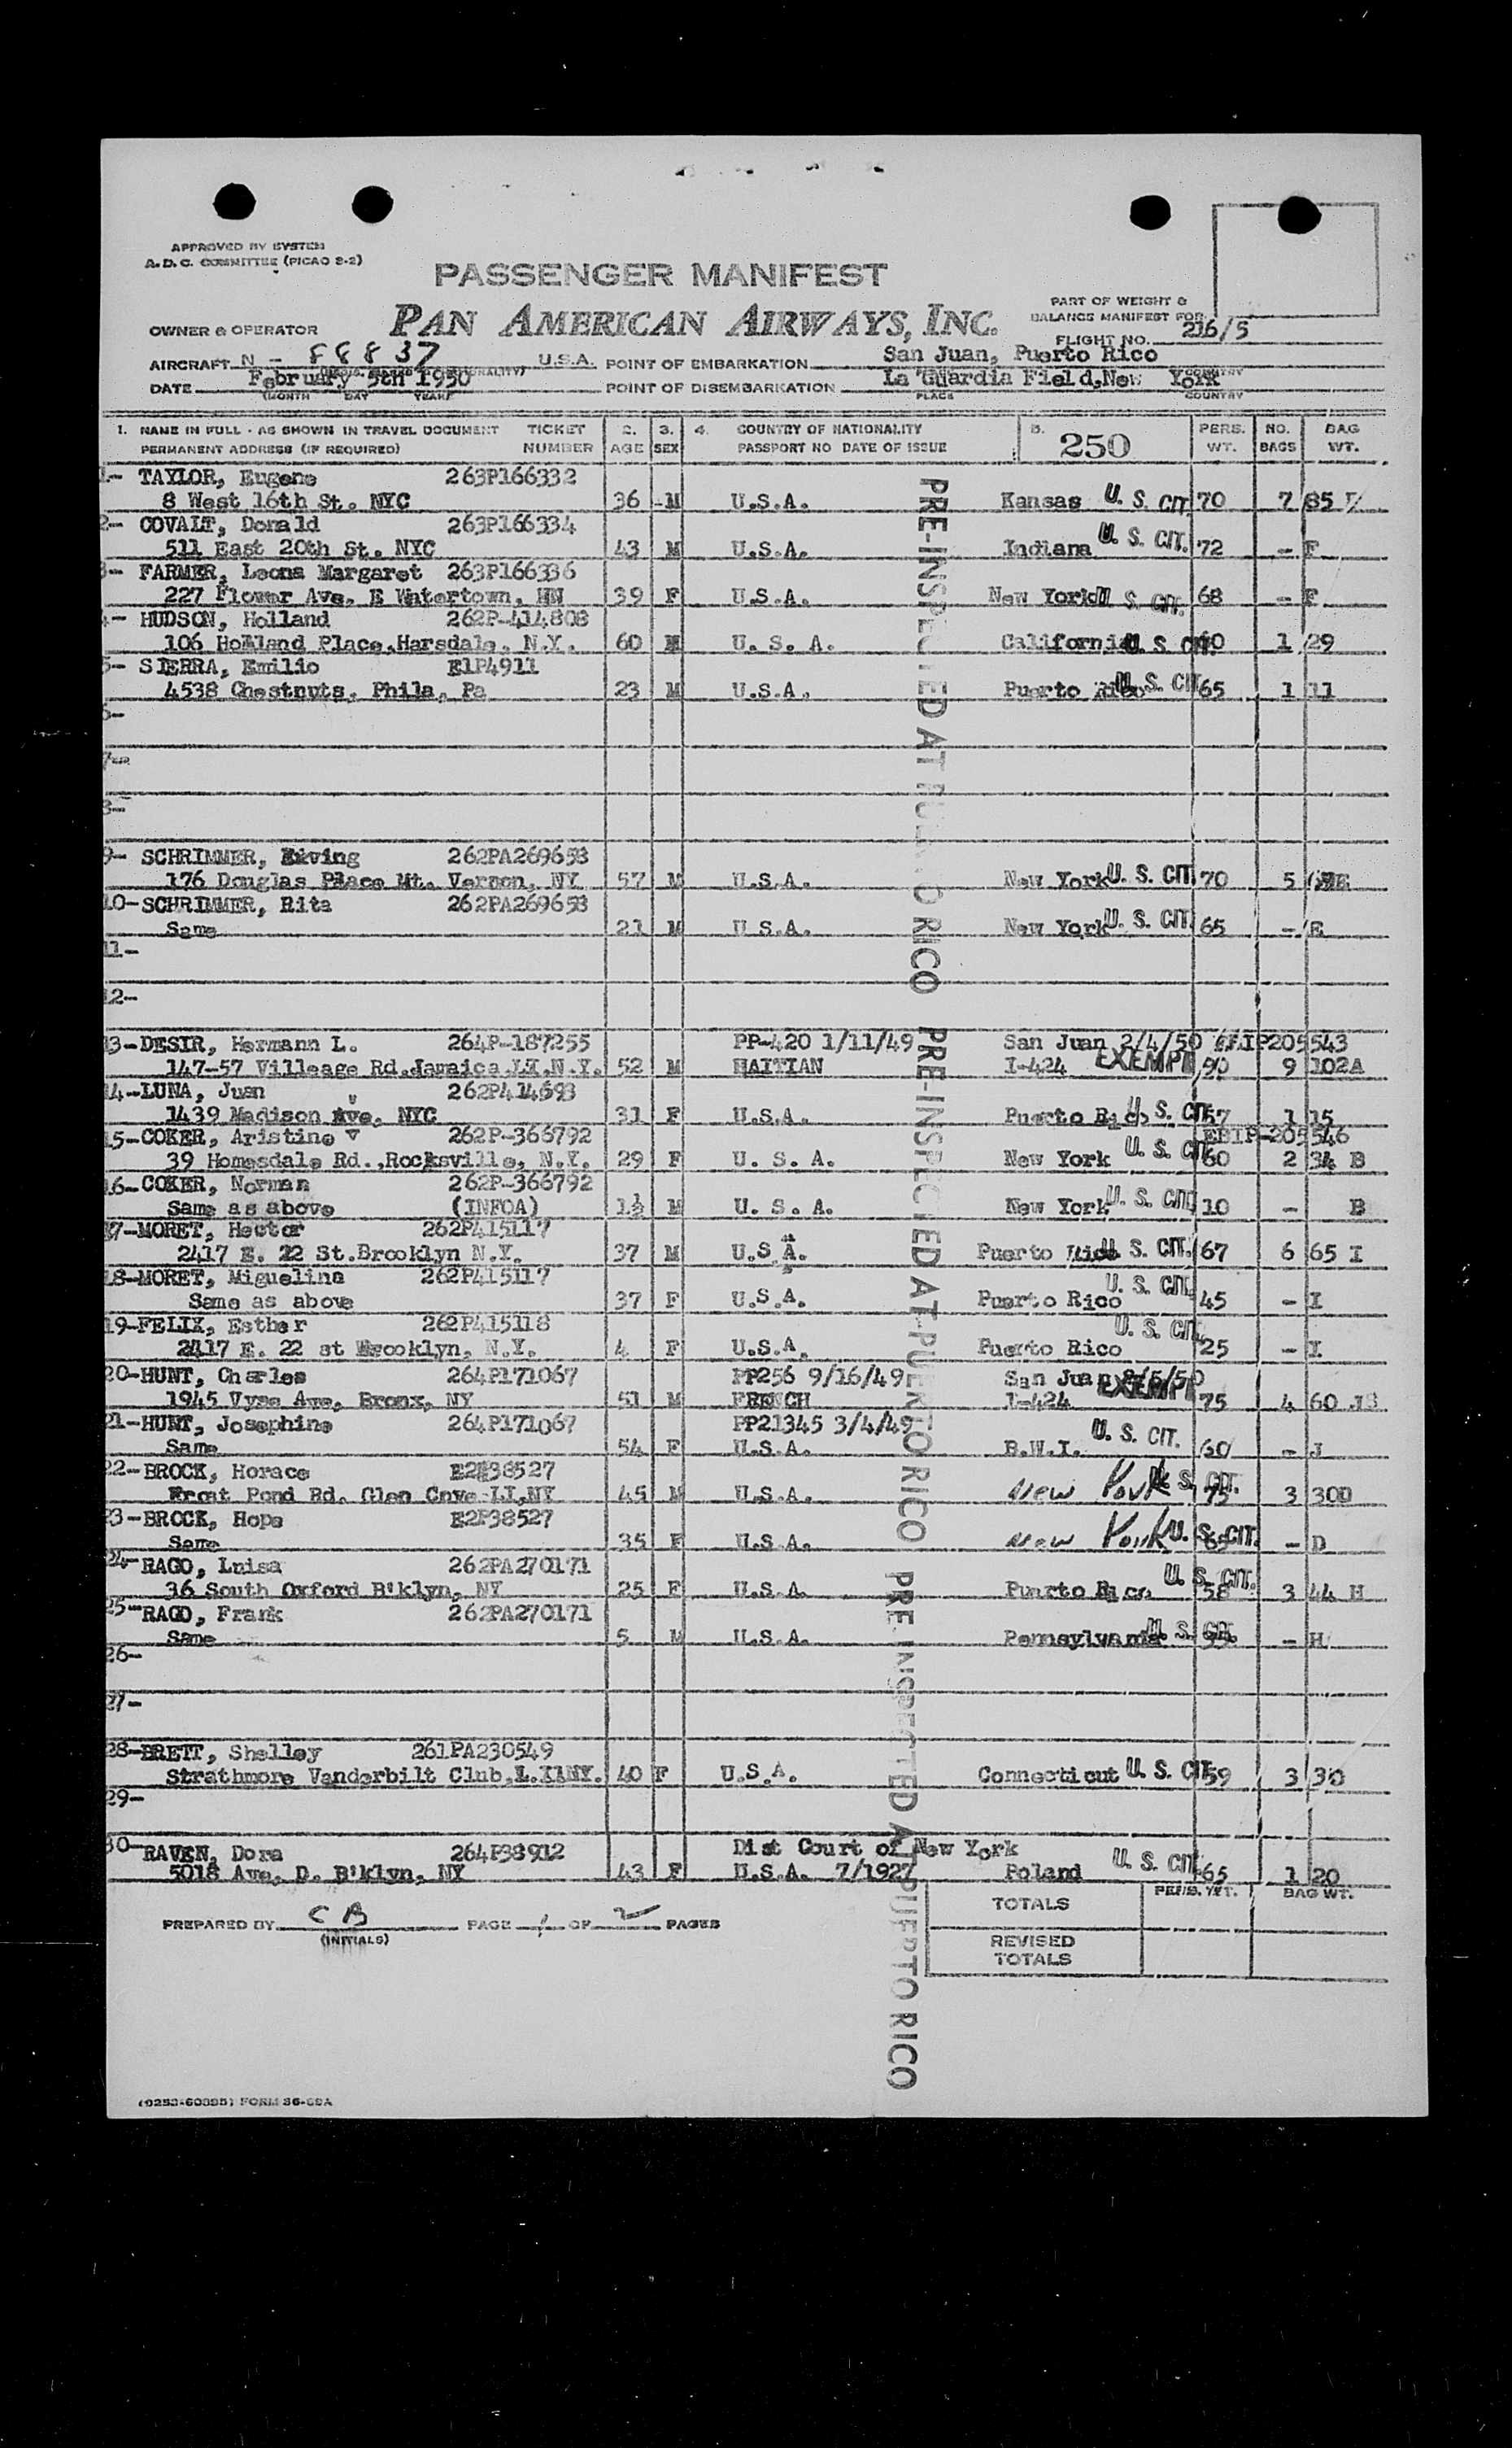 APPROVED BY SYSTEM
A.D.C. COMMITTEE (PICAO 2-2)
PASSENGER MANIFEST
PAN AMERICAN AIRWAYS, INC.
PART OF WEIGHT &
BALANCE MANIFEST FOR
OWNER & OPERATOR
FLIGHT NO. 216/5
AIRCRAFT N - 88837 U.S.A. POINT OF EMBARKATION San Juan, Puerto Rico
DATE February 5th 1950 POINT OF DISEMBARKATION La Guardia Field,New York
(MONTH DAY YEAR) PLACE COUNTRY
1. NAME IN FULL - AS SHOWN IN TRAVEL DOCUMENT TICKET 2. 3. 4. COUNTRY OF NATIONALITY 5. 250 PERS. NO. BAG
PERMANENT ADDRESS (IF REQUIRED) NUMBER AGE SEX PASSPORT NO DATE OF ISSUE WT. BAGS WT.
1- TAYLOR, Eugene 263P166332
8 West 16th St. NYC 36 M U.S.A. Kansas U. S. CIT. 70 7 85
2- COVALT, Donald 263P166334
511 East 20th St. NYC 43 M U.S.A. Indiana U. S. CIT. 72 - F
3- FARMER, Leona Margaret 263P166336
227 Flower Ave. E Watertown, 39 F U.S.A. New York U. S. CIT. 68 - F
4- HUDSON, Holland 262P-414808
106 Holland Place,Harsdale, N.Y. 60 M U. S. A. California U. S. CIT. 1 29
5- SIERRA, Emilio E1P4911
4538 Chestnuts, Phila, Pa 23 M U.S.A. Puerto Rico U. S. CIT 65 1 11
6-
7-
8-
9- SCHRIMMER, 262PA269653
176 Douglas Place Mt. Vernon, NY 57 M U.S.A. New York U. S. CIT. 70 5
10-SCHRIMMER, Rita 262PA269653
Same 21 M U.S.A. New York U. S. CIT. 65 - E
11-
12-
13-DESIR, Hermann L. 264P-187255 PP-420 1/11/49 San Juan 2/4/50
147-57 Villeage Rd.Jamaica.LI.N.Y. 52 M HAITIAN I-424 EXEMPT 90 9 102A
14-LUNA, Juan 262P414693
1439 Madison Ave. NYC 31 F U.S.A. Puerto Rico U. S. CIT. 57 1 15
15-COKER, Aristine 262P-366792 EBIP-205546
39 Homesdale Rd.,Rocksville, N.Y. 29 F U. S. A. New York U. S. CIT. 60 2 34 B
16-COKER, Norman 262P-366792
Same as above (INFOA) 1½ M U. S. A. New York U. S. CIT. 10 - B
17-MORET, Hector 262P415117
2417 E. 22 St.Brooklyn N.Y. 37 M U.S.A. Puerto Rico U. S. CIT. 67 6 65 I
18-MORET, Miguelina 262P415117
Same as above 37 F U.S.A. Puerto Rico U. S. CIT. 45 - I
19-FELIX, Esther 262P415118
2417 E. 22 st Brooklyn, N.Y. 4 F U.S.A. Puerto Rico U. S. CIT. 25 - I
20-HUNT, Charles 264P171067 PP256 9/16/49 San Juan 2/5/50
1945 Vyse Ave, Bronx, NY 51 M FRENCH I-424 EXEMPT 75 4 60
21-HUNT, Josephine 264P171067 PP21345 3/4/49
Same 54 F U.S.A. B.W.I. U. S. CIT. 60 - J
22-BROCK, Horace E2P38527
Frost Pond Rd. Glen Cove LI,NY 45 M U.S.A. New York U. S. CIT. 75 3 30D
23-BROCK, Hope E2P38527
Same 35 F U.S.A. New York U. S. CIT. - D
24-RAGO, Luisa 262PA270171
36 South Oxford B'klyn, NY 25 F U.S.A. Puerto Rico U. S. CIT. 58 3 44 H
25-RAGO, Frank 262PA270171
Same 5 M U.S.A. Pennsylvania U. S. CIT. - H
26-
27-
28-BRETT, Shelley 261PA230549
Strathmore Vanderbilt Club, 40 F U.S.A. Connecticut U. S. CIT. 59 3 30
29-
30-RAVEN, Dora 264P38912 Dist Court of New York
5018 Ave. D. B'klyn, NY 43 F U.S.A. 7/1927 Poland U. S. CIT. 65 1 20
TOTALS PERS. WT. BAG WT.
PREPARED BY CB PAGE 1 OF 2 PAGES
(INITIALS)
REVISED
TOTALS
PRE-INSPECTED AT PUERTO RICO
PRE-INSPECTED AT PUERTO RICO
PRE-INSPECTED AT PUERTO RICO
FORM 36-69A